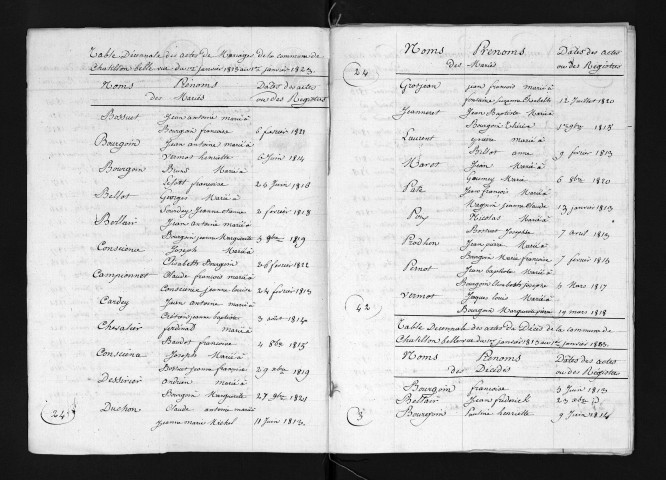 Table Décennale des actes de Mariages de la commune de
Chatillon belle vue du 1er janvier 1813 au 1er janvier 1823
Noms Prénoms Dates des actes
des Mariés ou des Registres
Bossuet Jean antoine marié à
Bourgoin francoise 6 fevrier 1821
Bourgoin Jean antoine marié à
Vermot henriette 6 Juin 1814
Bourgoin Bruno Marié à
françoise 26 Juin 1816
Bellot Georges Marié à
Jeanne 2 fevrier 1818
Bollair Jean antoine marié à
Bourgoin jeanne Marguerite 3 9bre 1819
Conscience Joseph Marié à
Elisabeth Bourgoin 26 fevrier 1822
Camponnet Claude francois marié à
Conscience jeanne louise 24 fevrier 1813
Cardey Jean antoine marié à
jeanne baptiste 3 aout 1814
Chevalier ferdinand marié à
Baudet francoise 4 8bre 1815
Conscience Joseph Marié à
Bossuet jeanne francoise 29 xbre 1819
Dessirier marié à
Bourgoin Marguerite 27 9bre 1820
Duchon Claude antoine marié
jeanne marie Michel 11 Juin 1813
24
24
Noms Prénoms Dates des actes
des Mariés ou des Registres
Grosjean jean francois marié à
fontaine Suzanne Elisabeth 12 Juillet 1820
Jeannerot Jean Baptiste Marié à
Bourgoin 1er 9bre 1815
Laurent pierre Marié à
Billot anne 9 fevrier 1813
Marot Jean Marié à
Marie 6 8bre 1820
Jean françois Marié à
jeanne Claude 13 janvier 1813
Pons Nicolas Marié à
Bossuet Josephe 7 avril 1813
Prodhon Jean pierre Marié à
Bourgoin Marie francoise 7 fevrier 1813
Pernot Jean baptiste Marié à
Bourgoin Elisabeth josephe 5 Mars 1817
Vermot Jaques louis Marié à
Bourgoin Marguerite 19 mars 1818
42
Table Décennale des actes de Décès de la commune de
Chatillon bellevue du 1er janvier 1813 au 1er janvier 1823
Noms Prénoms Dates des actes
des Décédés ou des Registres
Bourgoin francoise 3 Juin 1813
Bellair Jean frederick 23 xbre
Bourgoin Pauline henriette 9 Juin 1814
3